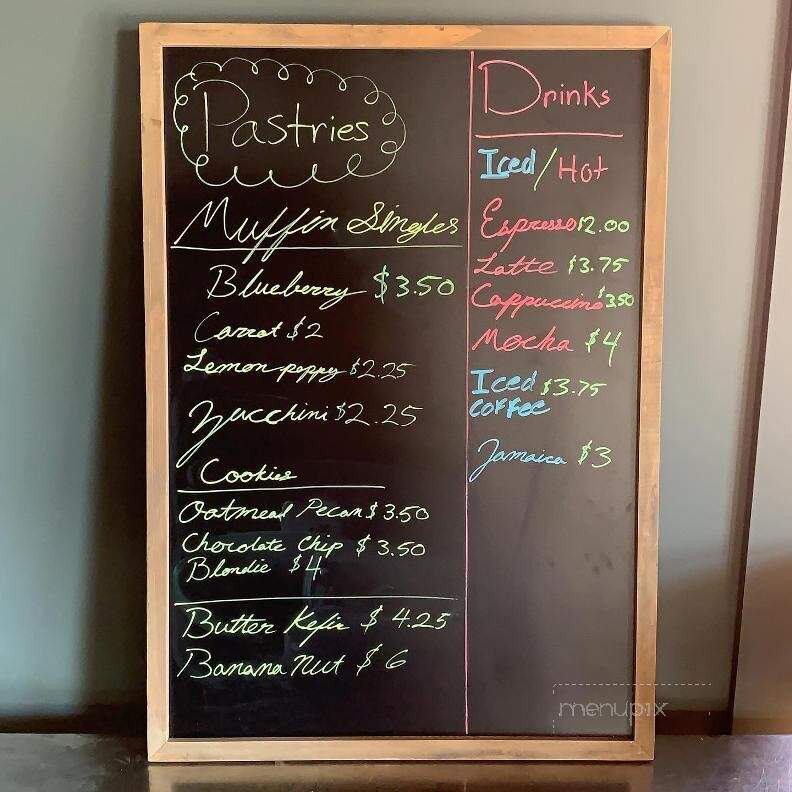 Pastries
Muffin Singles
Blueberry $3.50
Carrot $2
Lemon poppy $2.25
Zucchini $2.25
Cookies
Oatmeal Pecan $3.50
Chocolate Chip $3.50
Blondie $4
Butter Kefir $4.25
Banana Nut $6
Drinks
Iced/Hot
Espresso $2.00
Latte $3.75
Cappuccino $3.50
Mocha $4
Iced $3.75
coffee
Jamaica $3
menupix